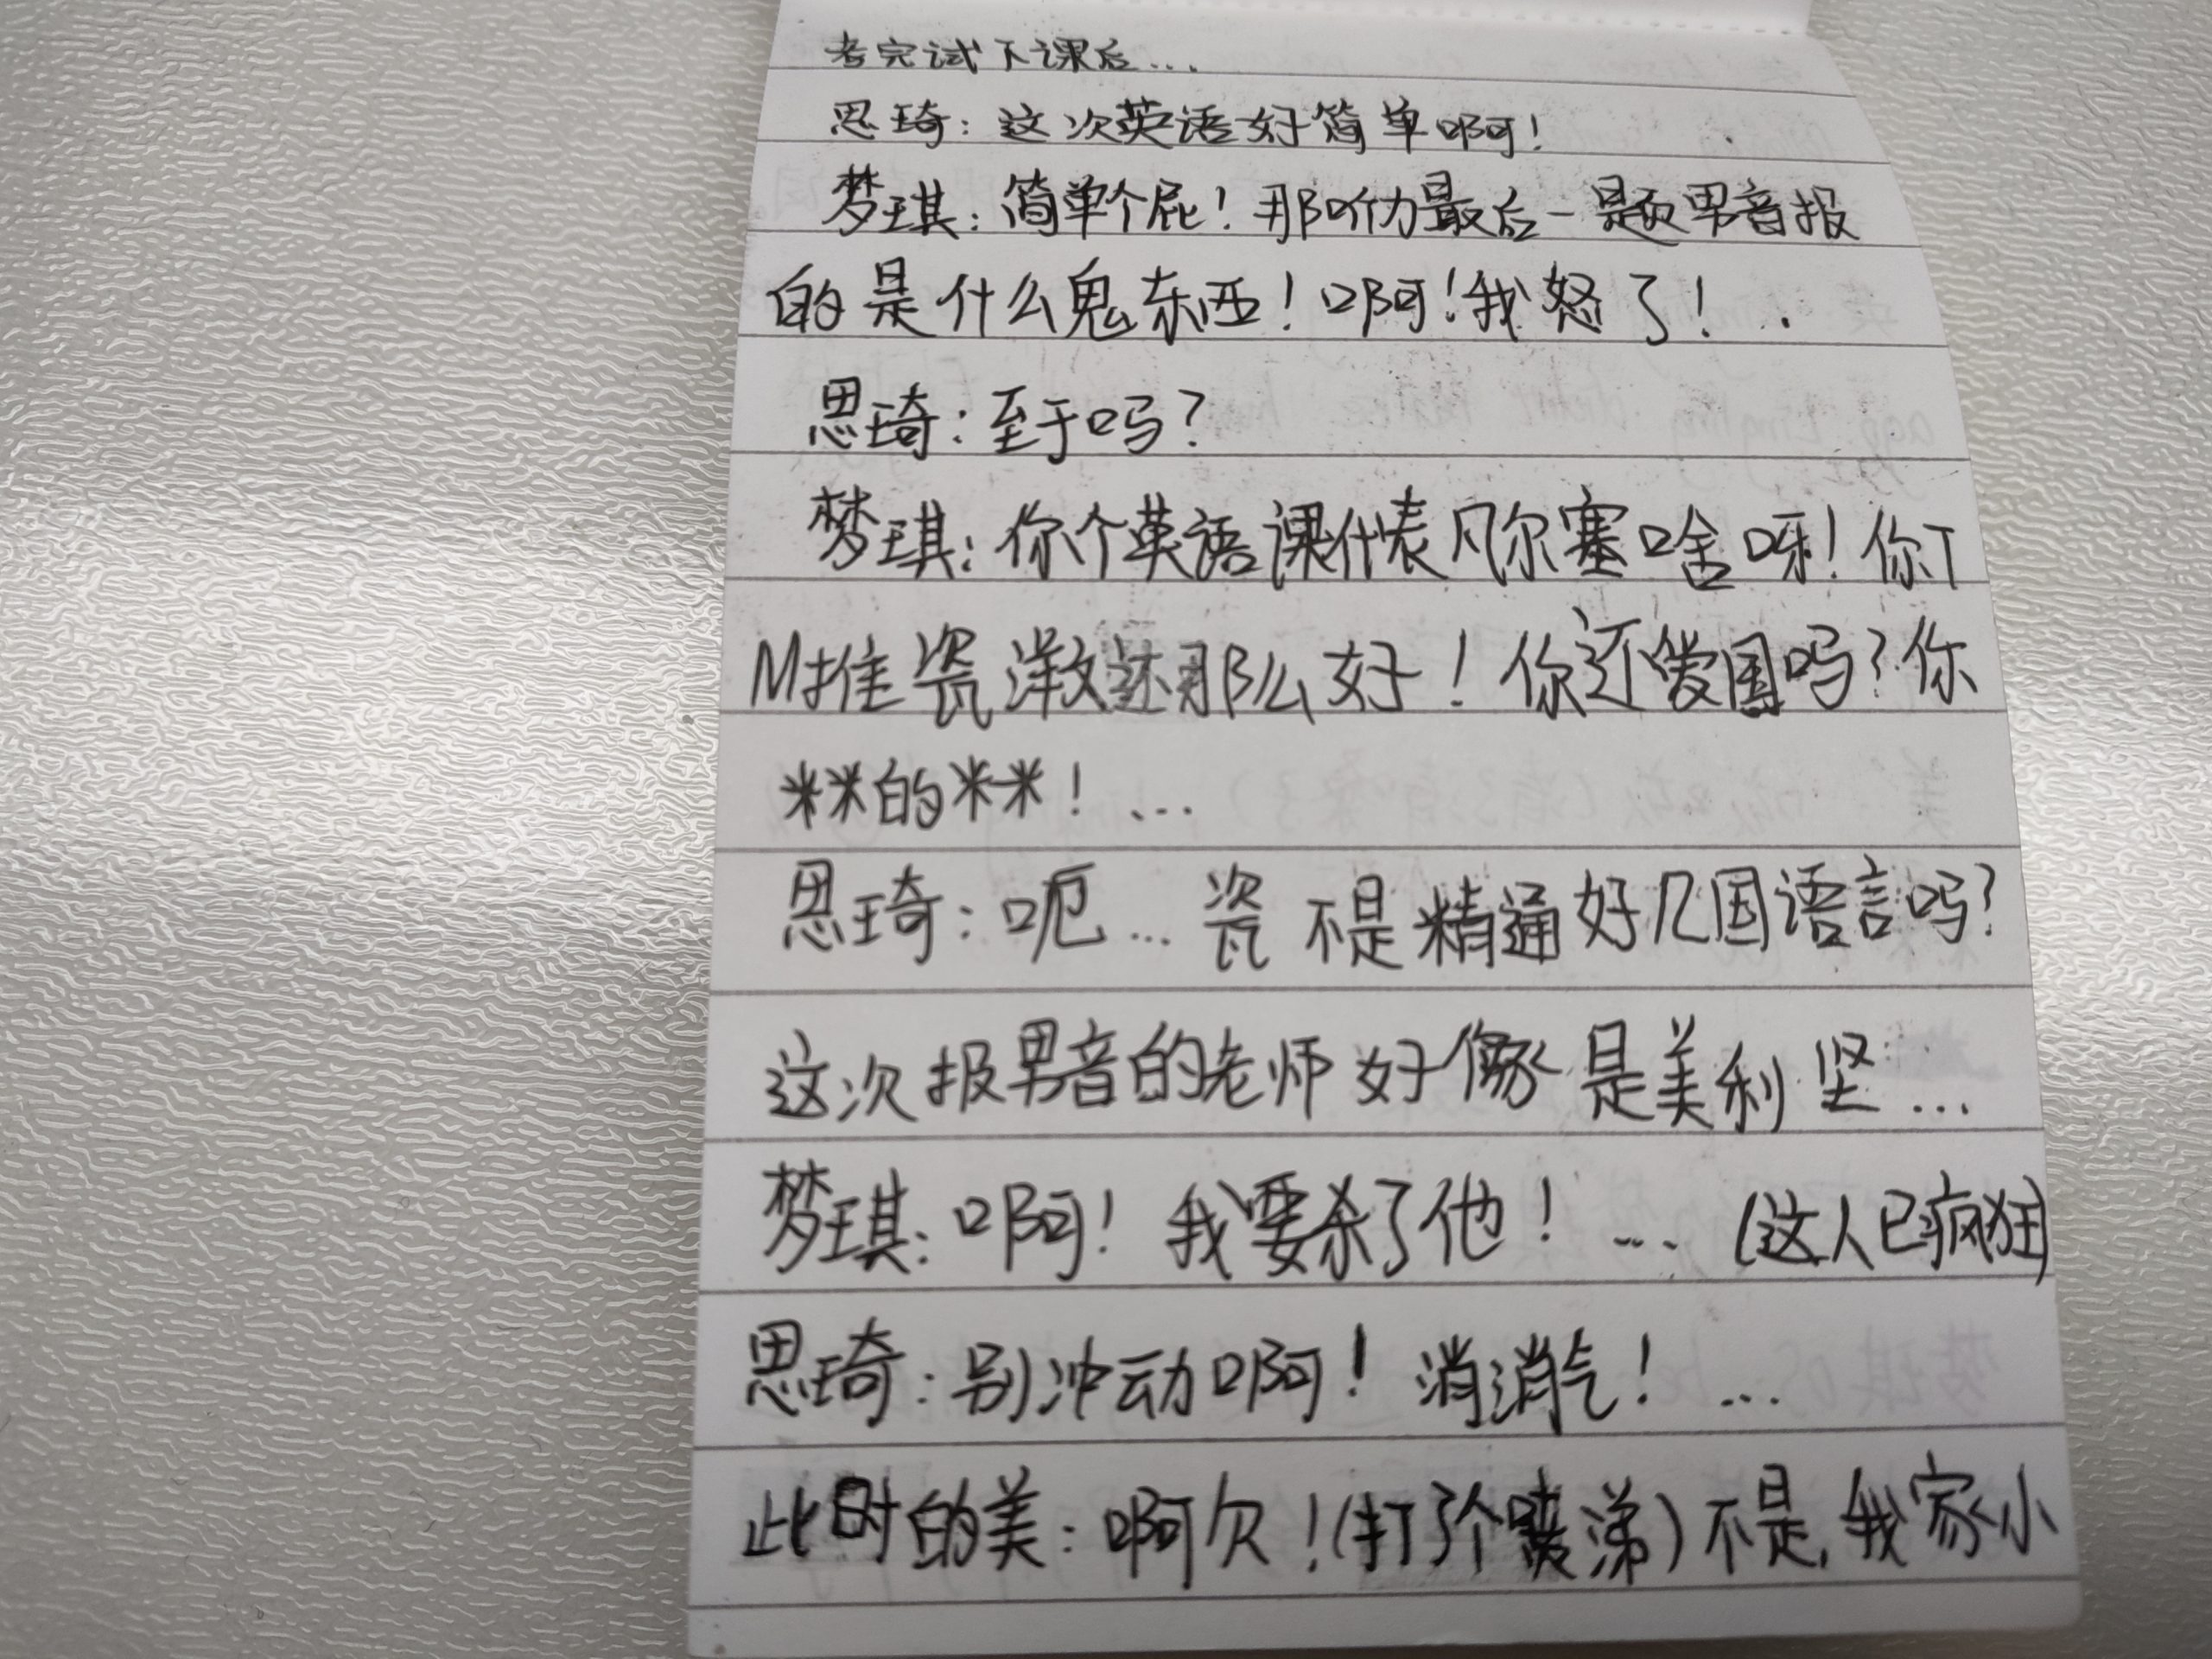 考完试下课后...
思琦：这次英语好简单啊！
梦琪：简单个屁！那听力最后一题男音报
的是什么鬼东西！啊！我怒了！.
思琦：至于吗？
梦琪：你个英语课代表凡尔塞啥呀！你T
M推瓷洋文还那么好！你还爱国吗？你
米米的米米！...
思琦：呃...瓷不是精通好几国语言吗？
这次报男音的老师好像是美利坚...
梦琪：啊！我要杀了他！...（这人已疯狂）
思琦：别冲动啊！消消气！...
此时的美：啊欠！（打了个喷涕）不是，我家小